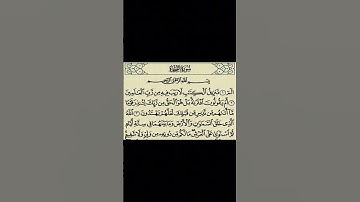 سُورَةُ السَّجْدَةِ
بِسْمِ اللَّهِ الرَّحْمَٰنِ الرَّحِيمِ
الٓمٓ ١ تَنزِيلُ ٱلْكِتَٰبِ لَا رَيْبَ فِيهِ مِن رَّبِّ ٱلْعَٰلَمِينَ
٢ أَمْ يَقُولُونَ ٱفْتَرَىٰهُ بَلْ هُوَ ٱلْحَقُّ مِن رَّبِّكَ لِتُنذِرَ قَوْمًا
مَّآ أَتَىٰهُم مِّن نَّذِيرٍ مِّن قَبْلِكَ لَعَلَّهُمْ يَهْتَدُونَ ٣ ٱللَّهُ
ٱلَّذِى خَلَقَ ٱلسَّمَٰوَٰتِ وَٱلْأَرْضَ وَمَا بَيْنَهُمَا فِى سِتَّةِ أَيَّامٍ
ثُمَّ ٱسْتَوَىٰ عَلَى ٱلْعَرْشِ مَا لَكُم مِّن دُونِهِۦ مِن وَلِىٍّ وَلَا شَفِيعٍ